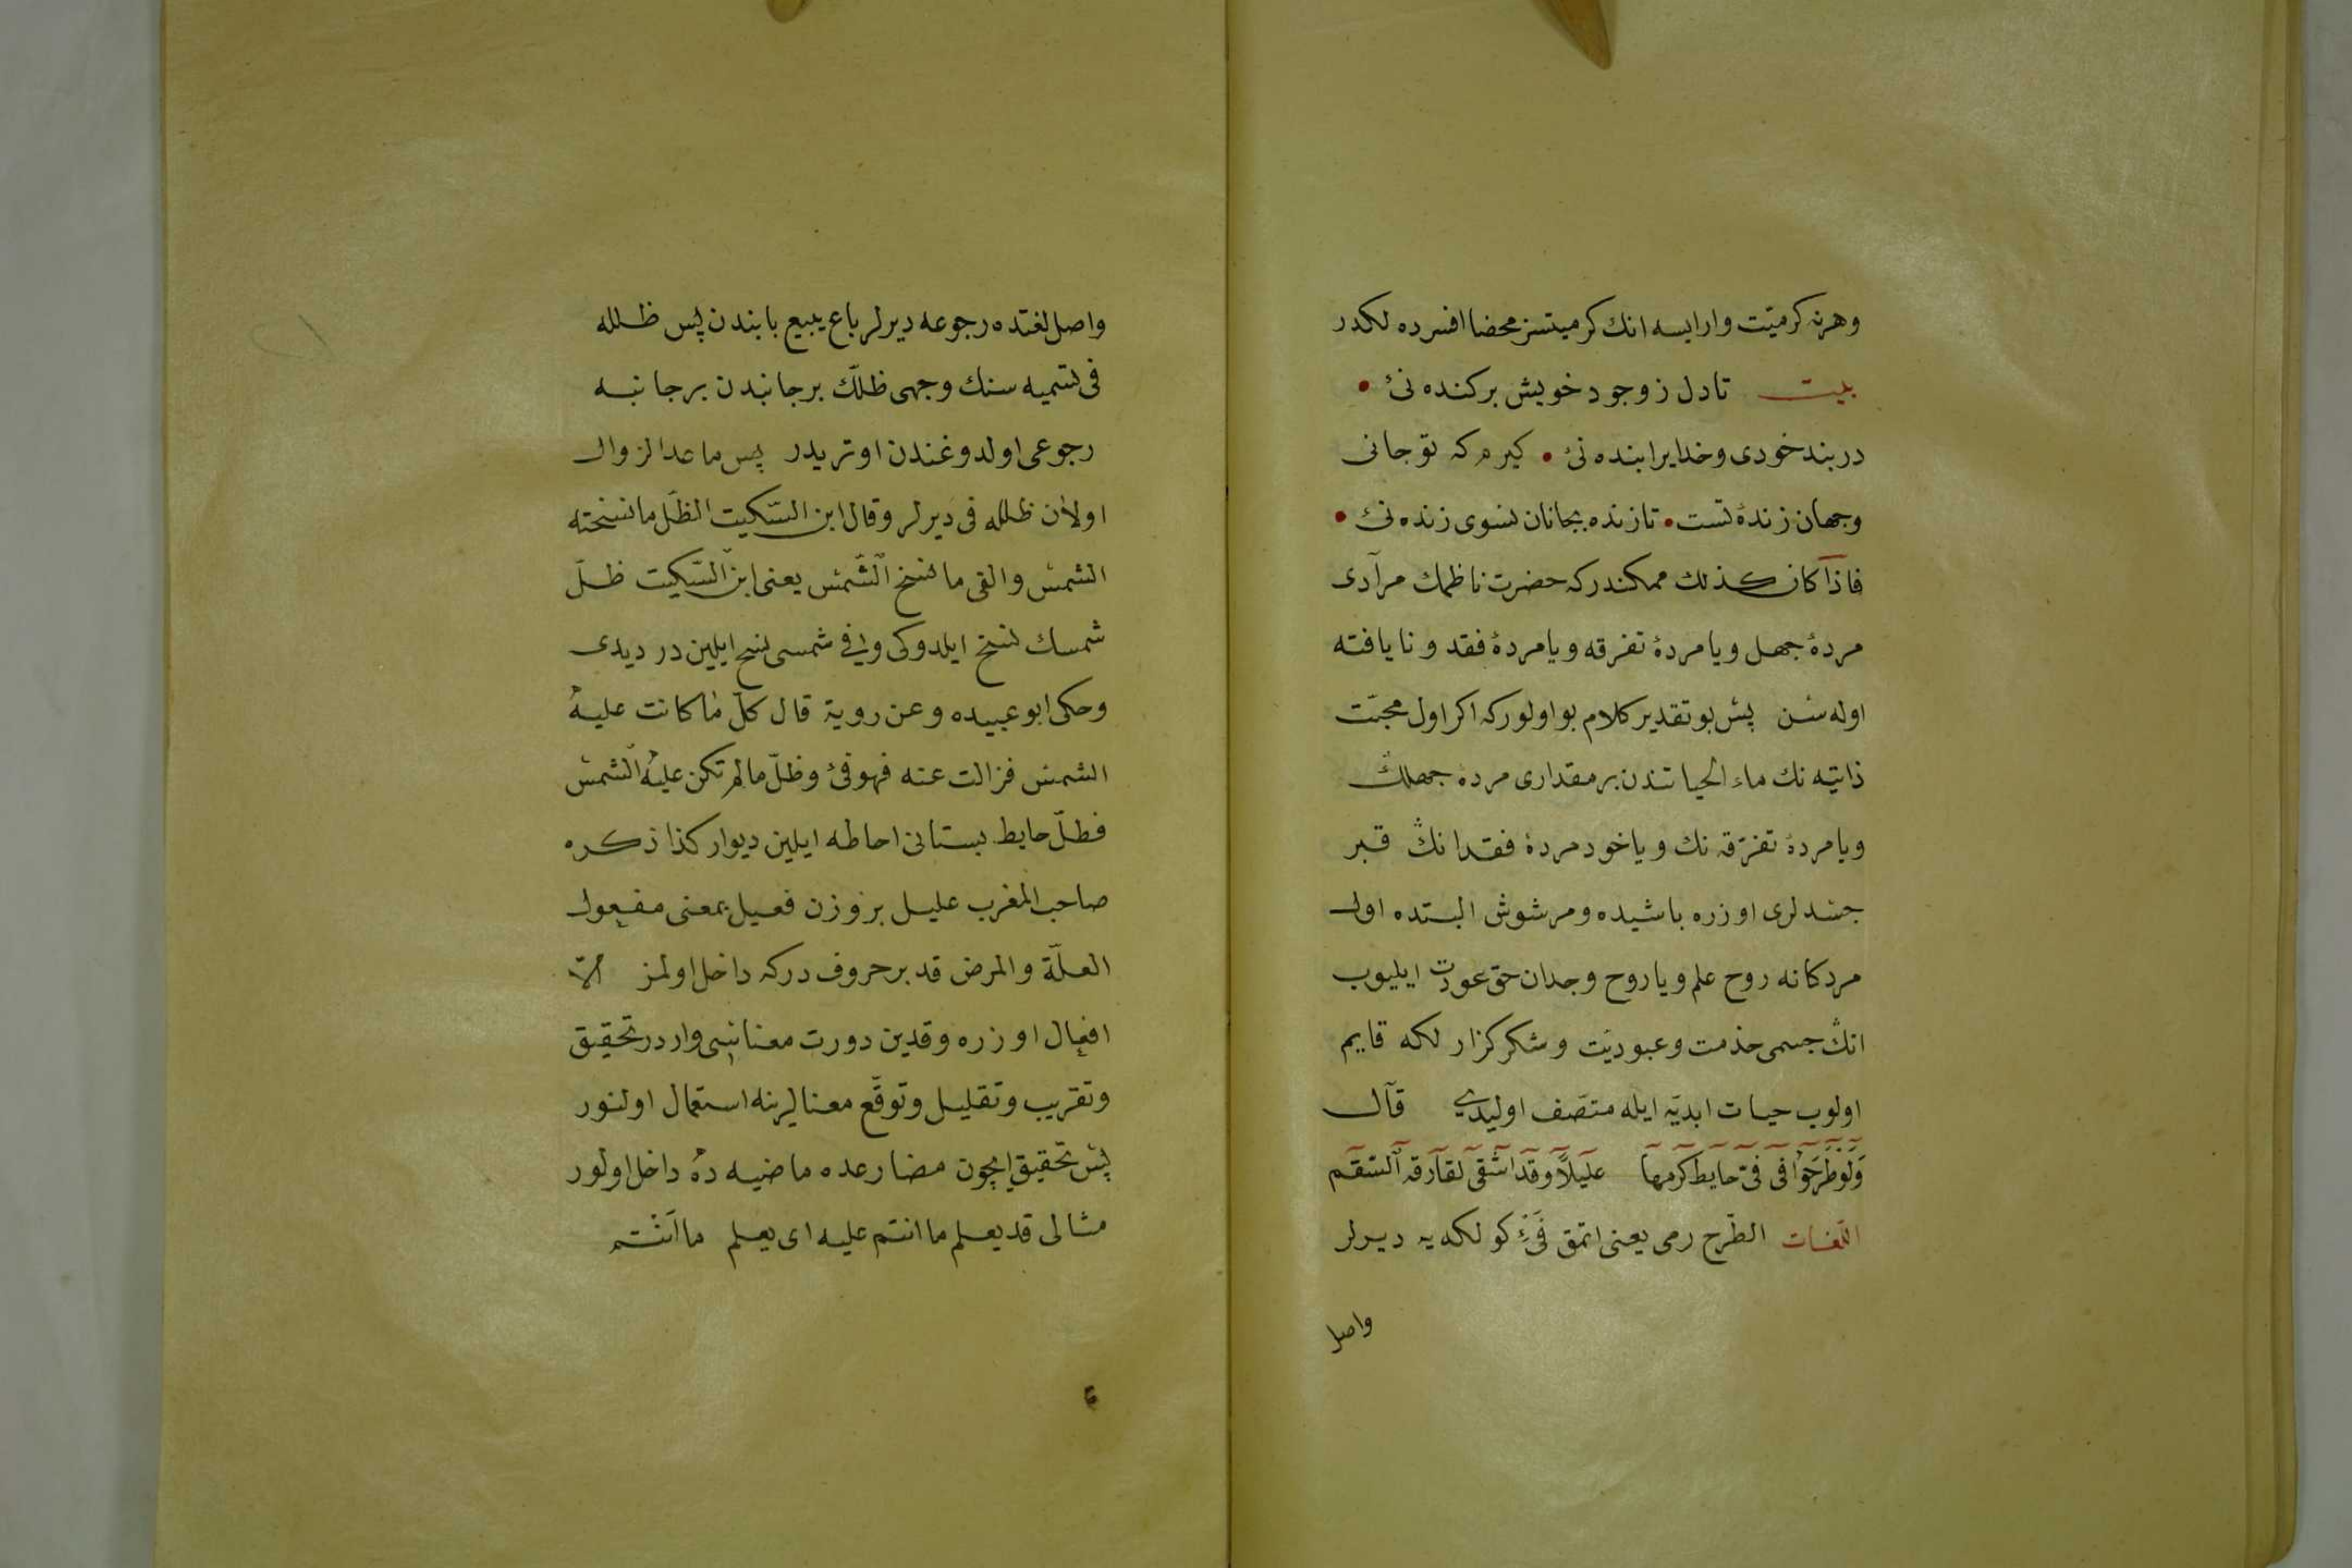 وهرنه كرميّت وارايسه انك كرميتسز محضا افسرده لكدر
بيت تادل ز وجود خويش بركنده نئ •
دربند خودى وخدايرا بنده نئ • كيرم كه تو جانى
وجهان زندهٔ تست • تازنده بجانان نشوى زنده نئ •
فاذا كان كذلك ممكندركه حضرت ناظمك مرآدى
مردهٔ جهل ويا مردهٔ تفرقه ويا مردهٔ فقد و نا يافته
اوله سن پس بو تقدير كلام بو اولوركه اكر اول محبّت
ذاتيه نك ماء الحياتندن بر مقدارى مرده جهلك
ويا مردهٔ تفرّقه نك و ياخود مردهٔ فقدانڭ قبر
جسدلرى اوزره باشيده ومرشوش البتده اول
مردكانه روح علم ويا روح وجدان حق عودت ايليوب
انڭ جسمى خذمت وعبوديّت وشكركزار لكه قايم
اولوب حيات ابديّه ايله متصّف اوليدى قال
وَلَوْ طَرَحُوا فى فئ حايط كرمها عليلاً وقد اشفى لفارقه السقم
اللّغات الطّرح رمى يعنى اتمق فَىْءٍ كولكه يه ديرلر
واصل
واصل لغتده رجوعه ديرلر باع يبيع بابندن پس ظلله
فى تسميه سنك وجهى ظلّك برجانبدن برجانبه
رجوعى اولدوغندن اوتريدر پس ما عدا الزوال
اولان ظلله فى ديرلر وقال ابن السّكيت الظّل ما نسخته
الشمس والفى ما نسخ الشّمس يعنى ابن السّكيت ظلّ
شمسك نسخ ايلدوكى وفى شمسى نسخ ايلين در ديدى
وحكى ابو عبيده وعن روية قال كلّ ما كانت عليه
الشمس فزالت عنه فهو فئ وظلّ ما لم تكن عليه الشمس
فظلّ حايط بستانى احاطه ايلين ديوار كذا ذكره
صاحب المغرب عليل بر وزن فعيل بمعنى مفعول
العلّة والمرض قد بر حروف دركه داخل اولمز الّا
افعال اوزره وقدين دورت معناسى واردر تحقيق
وتقريب وتقليل وتوقّع معنالرينه استعمال اولنور
پس تحقيق ايچون مضارعده ماضيه ده داخل اولور
مثالى قد يعلم ما انتم عليه اى يعلم ما انتم